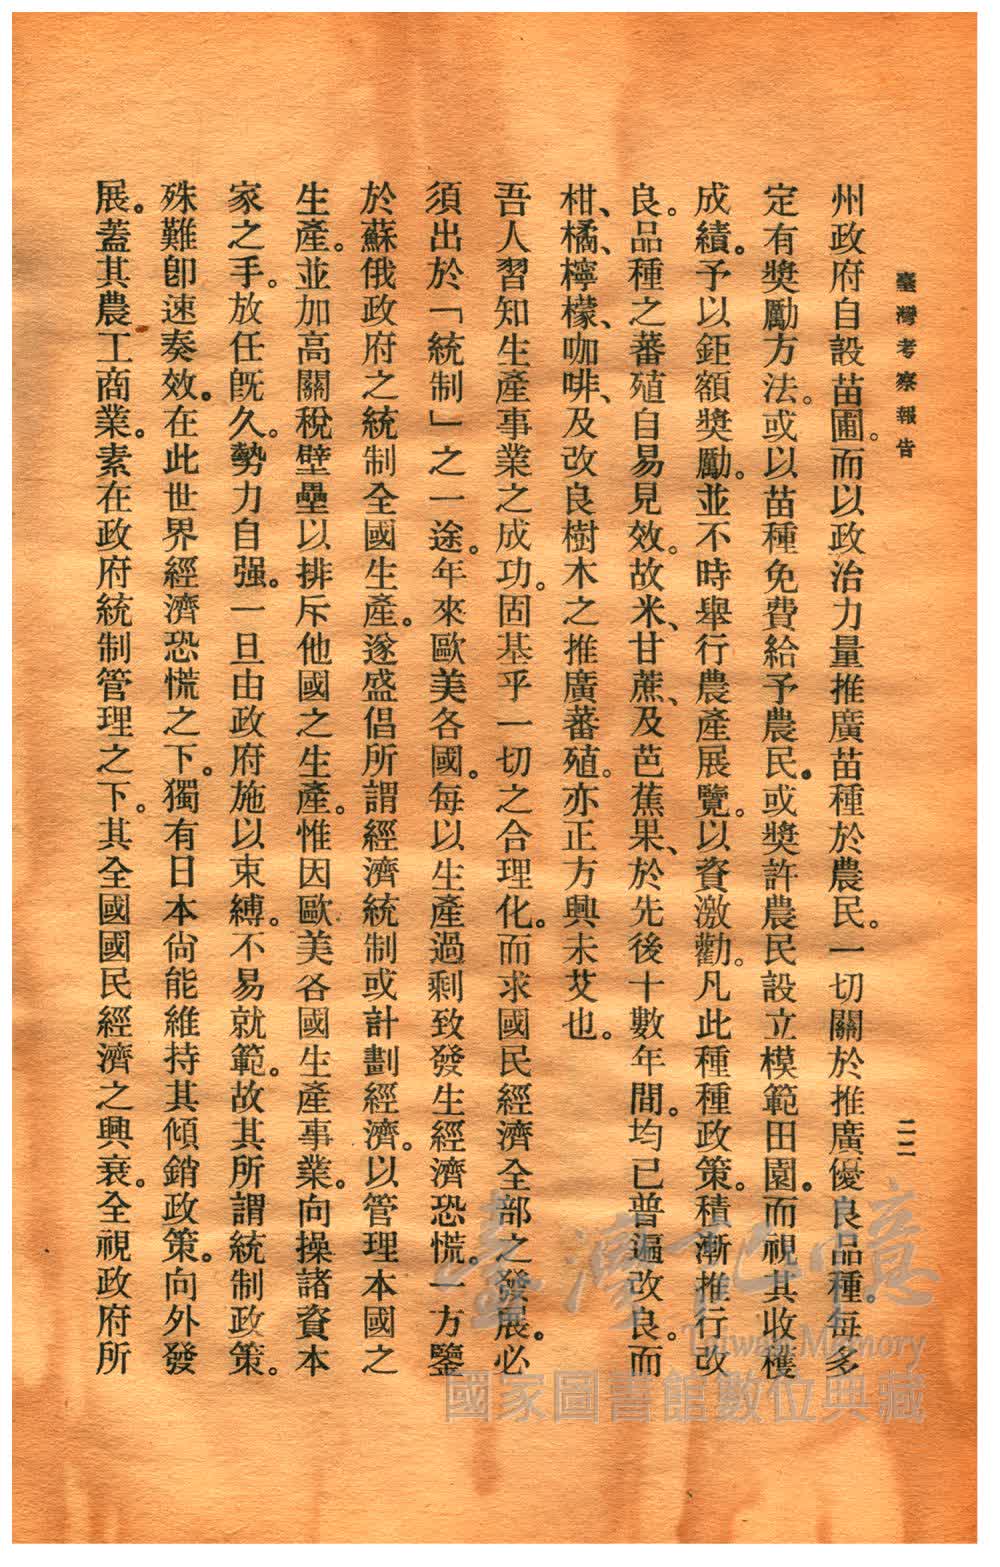 臺灣考察報告
二二
州政府自設苗圃。而以政治力量推廣苗種於農民。一切關於推廣優良品種。每多
定有獎勵方法。或以苗種免費給予農民。或獎許農民設立模範田園。而視其收穫
成績。予以鉅額獎勵。並不時舉行農產展覽。以資激勸。凡此種種政策。積漸推行改
良。品種之蕃殖自易見效。故米、甘蔗、及芭蕉果、於先後十數年間。均已普遍改良。而
柑、橘、檸檬、咖啡、及改良樹木之推廣蕃殖。亦正方興未艾也。
吾人習知生產事業之成功。固基乎一切之合理化。而求國民經濟全部之發展。必
須出於「統制」之一途。年來歐美各國。每以生產過剩致發生經濟恐慌。一方鑒
於蘇俄政府之統制全國生產。遂盛倡所謂經濟統制或計劃經濟。以管理本國之
生產。並加高關稅壁壘以排斥他國之生產。惟因歐美各國生產事業。向操諸資本
家之手。放任旣久。勢力自强。一旦由政府施以束縛。不易就範。故其所謂統制政策。
殊難卽速奏效。在此世界經濟恐慌之下。獨有日本尙能維持其傾銷政策。向外發
展。蓋其農工商業。素在政府統制管理之下。其全國國民經濟之興衰。全視政府所
臺灣記憶
Taiwan Memory
國家圖書館數位典藏